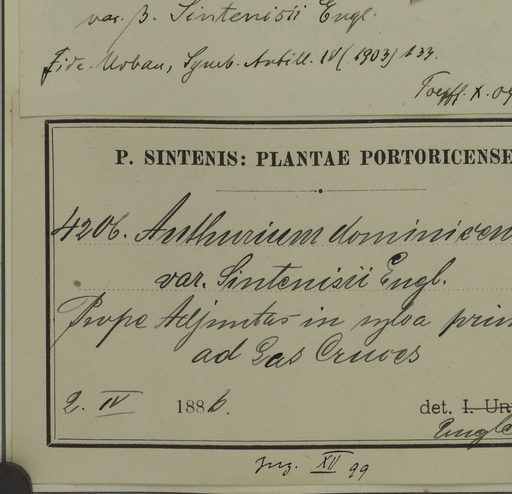 var. β. Sintenisii Engl.
Fide Urban, Symb. Antill. IV (1903) 133.
X. 09
P. SINTENIS: PLANTAE PORTORICENSE
4206. Anthurium dominicen
var. Sintenisii Engl.
Prope Adjuntas in sylva prim
ad Las Cruces
2. IV 1886.
det. I. Ur
Engle
XII 99